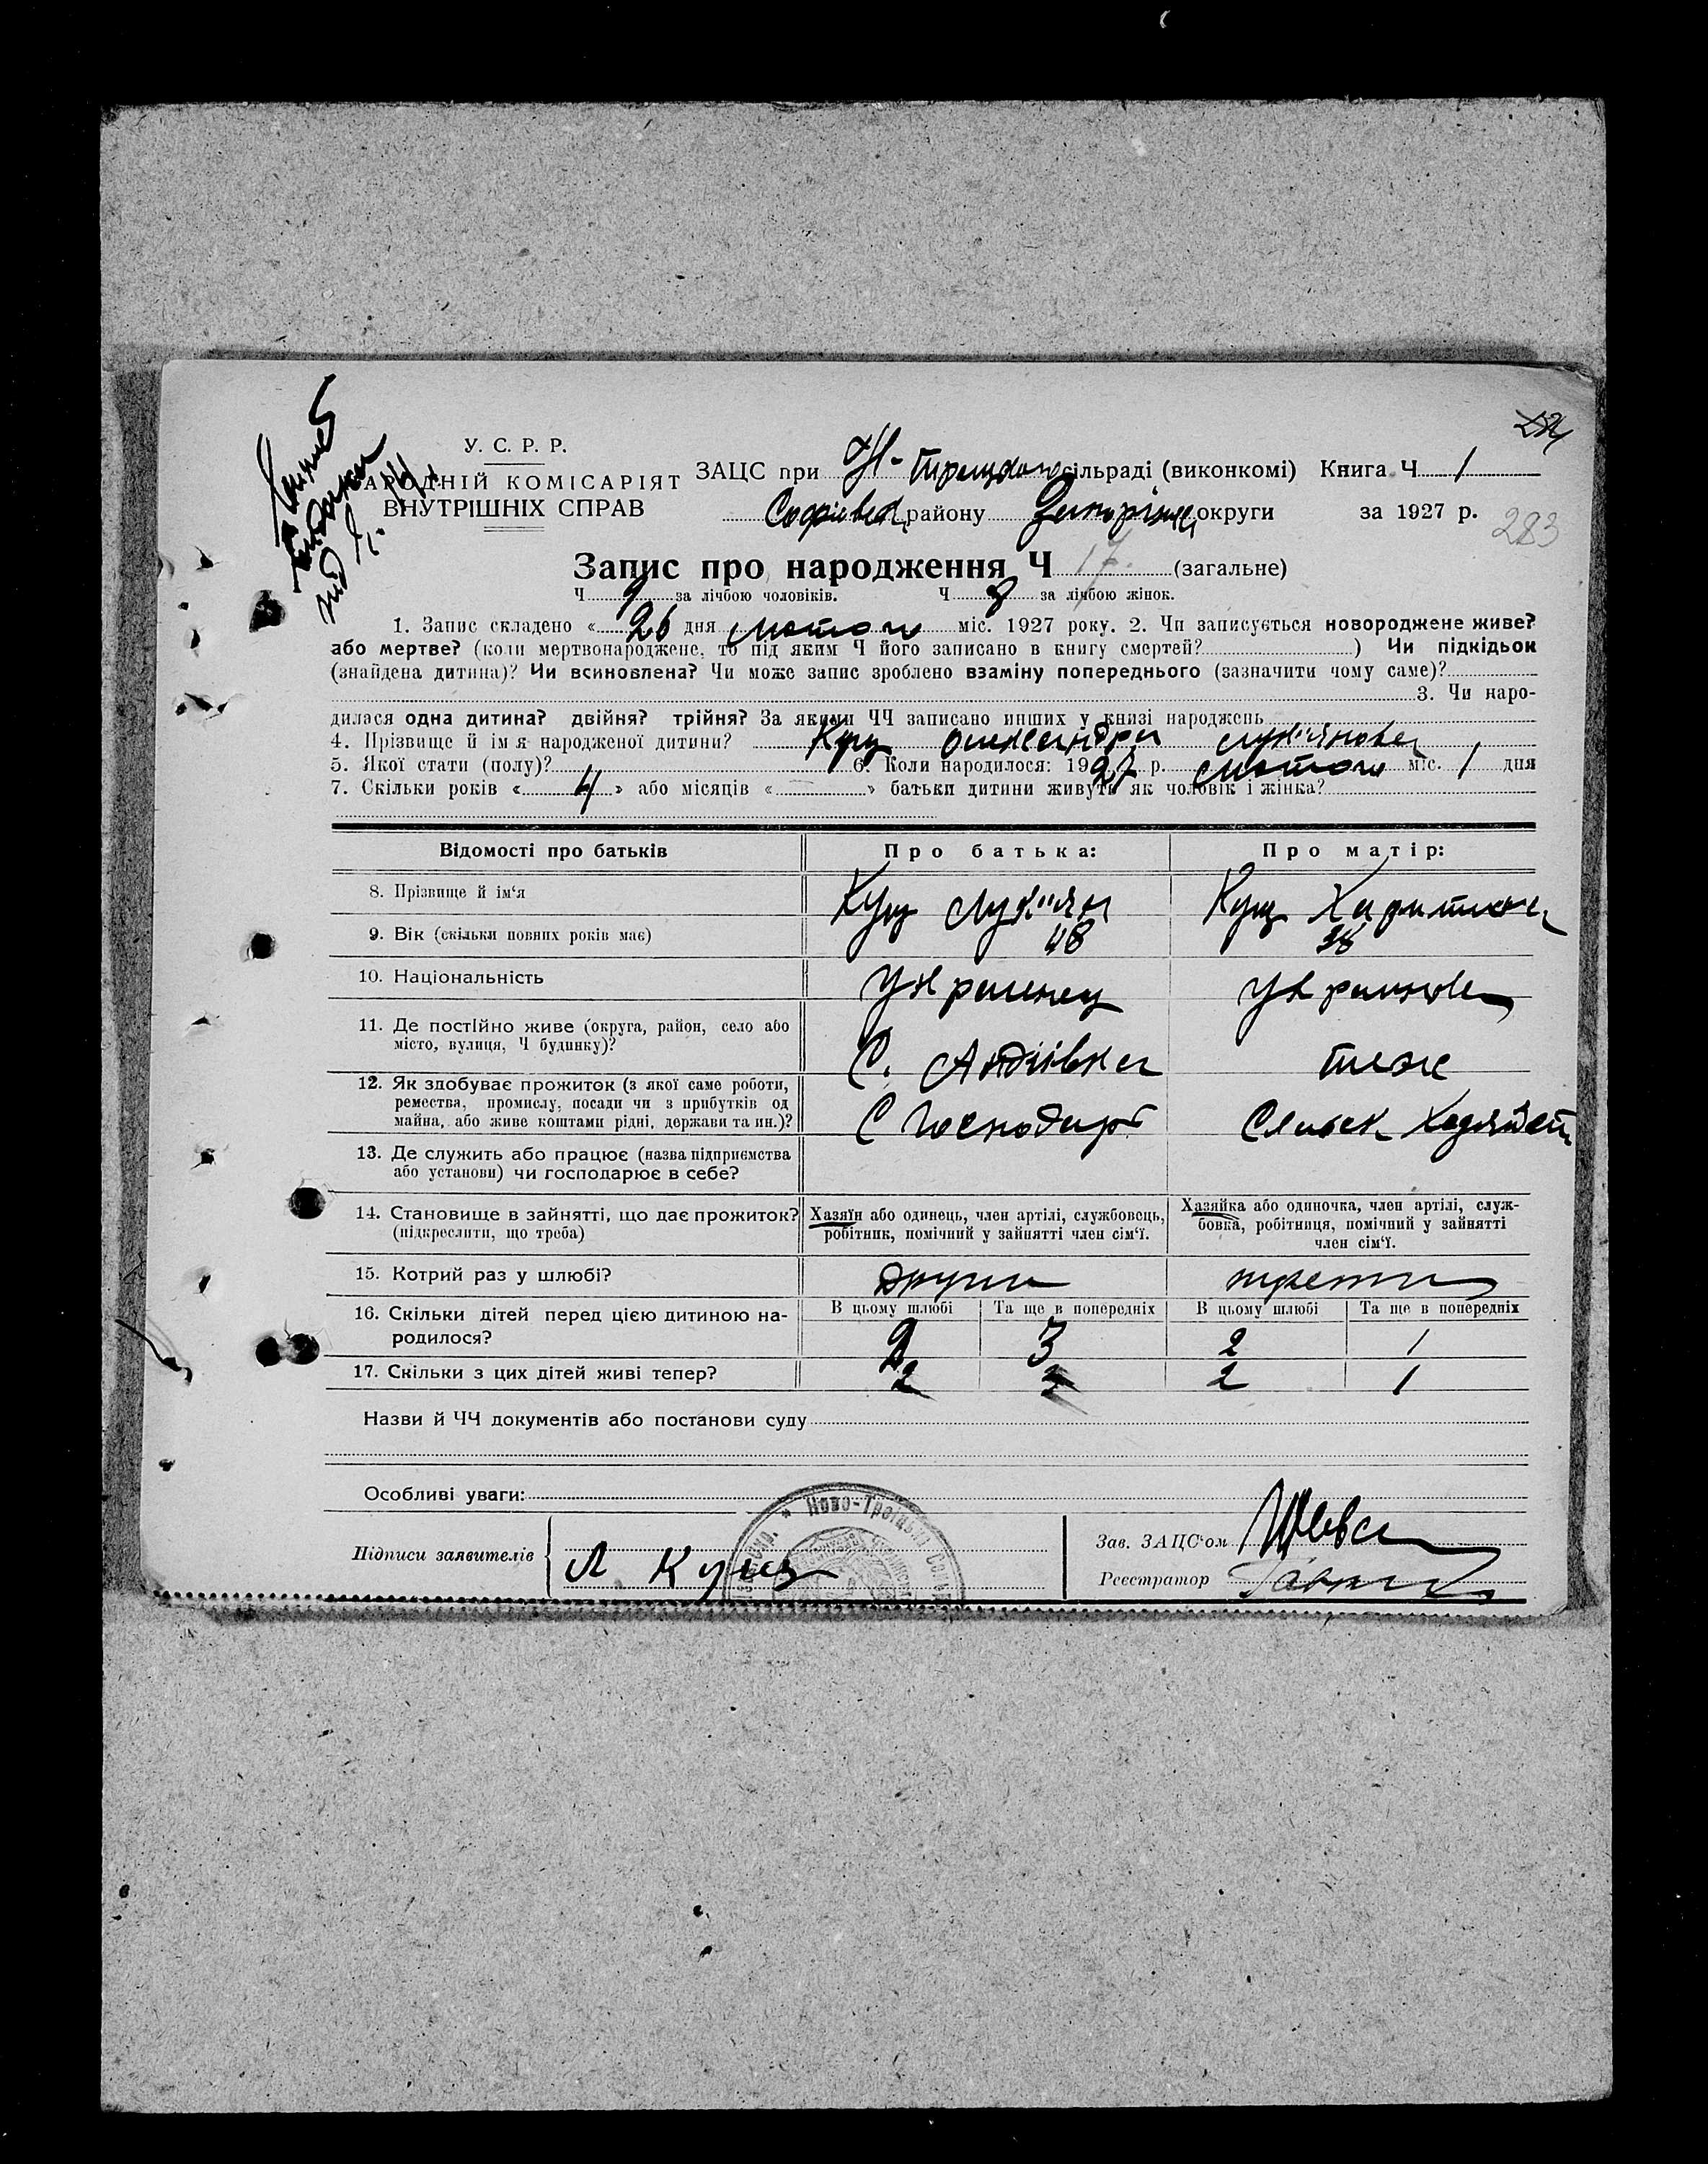 У. С. Р. Р.
НАРОДНІЙ КОМІСАРІЯТ
ВНУТРІШНІХ СПРАВ
ЗАЦС при Н-Троицком сільраді (виконкомі) Книга Ч 1
Софиевск району Запоріжс округи за 1927 р.
283
Запис про народження Ч 17 (загальне)
Ч 9 за лічбою чоловіків. Ч 8 за лічбою жінок.
1. Запис складено « 26 дня лютого міс. 1927 року. 2. Чи записується новороджене живе?
або мертве? (коли мертвонароджене, то під яким Ч його записано в книгу смертей? ) Чи підкідьок
(знайдена дитина)? Чи всиновлена? Чи може запис зроблено взаміну попереднього (зазначити чому саме)?
3. Чи наро-
дилася одна дитина? двійня? трійня? За якими ЧЧ записано инших у книзі народжень
4. Прізвище й ім'я народженої дитини? Кущ Олександра Лук'янова
5. Якої стати (полу)? 6. Коли народилося: 1927 р. лютого міс. 1 дня
7. Скільки років « 4 » або місяців « » батьки дитини живуть як чоловік і жінка?
Відомості про батьків Про батька: Про матір:
8. Прізвище й ім'я Кущ Лук'ян Кущ Харитина
9. Вік (скільки повних років має) 48 38
10. Національність Украинец Украинка
11. Де постійно живе (округа, район, село або
місто, вулиця, Ч будинку)? С. Андіівка тоже
12. Як здобуває прожиток (з якої саме роботи,
ремества, промислу, посади чи з прибутків од
майна, або живе коштами рідні, держави та ин.)? С Господарь Сельск Хозяйст
13. Де служить або працює (назва підприємства
або установи) чи господарює в себе?
14. Становище в зайнятті, що дає прожиток?
(підкреслити, що треба)
Хазяїн або одинець, член артілі, службовець,
робітник, помічний у зайнятті член сім'ї.
Хазяйка або одиночка, член артілі, служ-
бовка, робітниця, помічний у зайнятті
член сім'ї.
15. Котрий раз у шлюбі? други трети
В цьому шлюбі Та ще в попередніх В цьому шлюбі Та ще в попередніх
16. Скільки дітей перед цією дитиною на-
родилося? 2 3 2 1
17. Скільки з цих дітей живі тепер? 2 3 2 1
Назви й ЧЧ документів або постанови суду
Особливі уваги:
Ново-Троїцька
Підписи заявителів Л Кущ
Зав. ЗАЦС'ом
Реєстратор